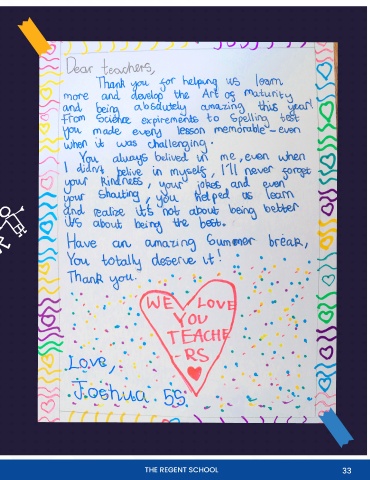 Dear teachers,
Thank you for helping us learn
more and develop the Art of maturity
and being absolutely amazing this year!
From Science expirements to Spelling test
you made every lesson memorable-even
when it was challenging.
You always belived in me, even when
I didn't belive in myself, I'll never forget
your kindness, your jokes and even
your shouting, you helped us learn
and realize it's not about being better
it's about being the best.
Have an amazing Summer break,
You totally deserve it!
Thank you.
WE LOVE
YOU
TEACHE
-RS
Love,
Joshua. 5S
THE REGENT SCHOOL
33